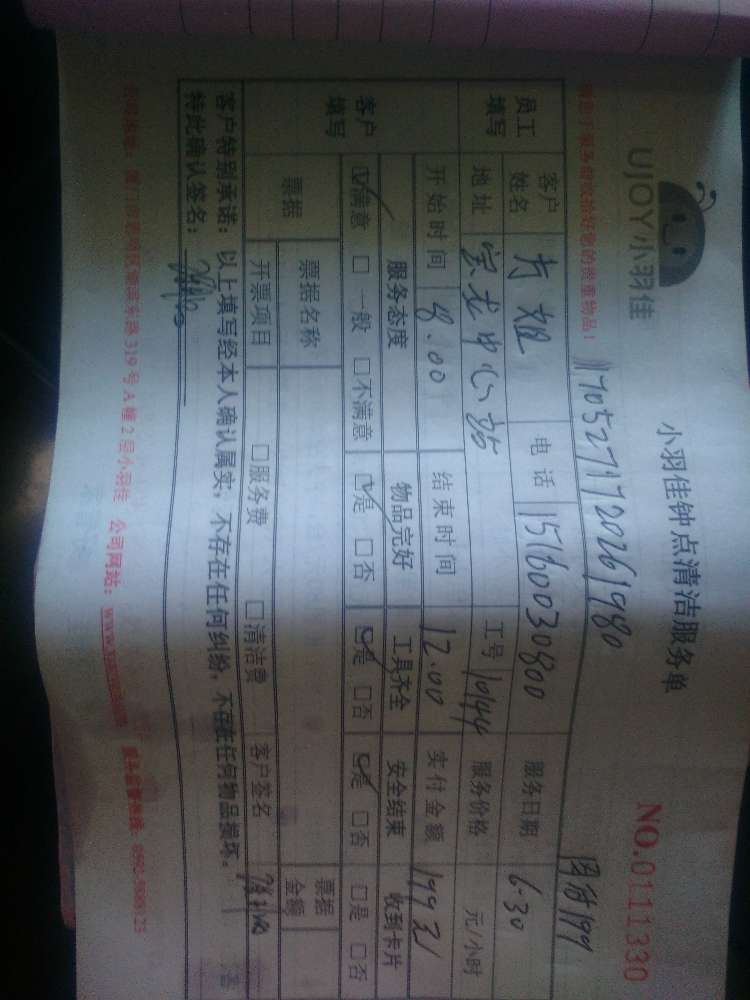 UJOY小羽佳
小羽佳钟点清洁服务单
NO.0111330
服务都收拾好您的贵重物品!
1705271720261980
199
员工填写
客户姓名
电话 15160030800
服务日期 6-30
地址
工号 10144
服务价格 元/小时
开始时间 8.00
结束时间 12.00
实付金额 199元
客户填写
服务态度 物品完好 工具齐全 安全结束 收到卡片
☑满意 □一般 □不满意 ☑是 □否 ☑是 □否 ☑是 □否 □是 □否
票据
票据名称
票据金额
开票项目 □服务费 □清洁费 客户签名
客户特别承诺:以上填写经本人确认属实,不存在任何纠纷,不存在任何物品损坏。
特此确认签名:
319号A幢2层小羽佳 公司网站:www.